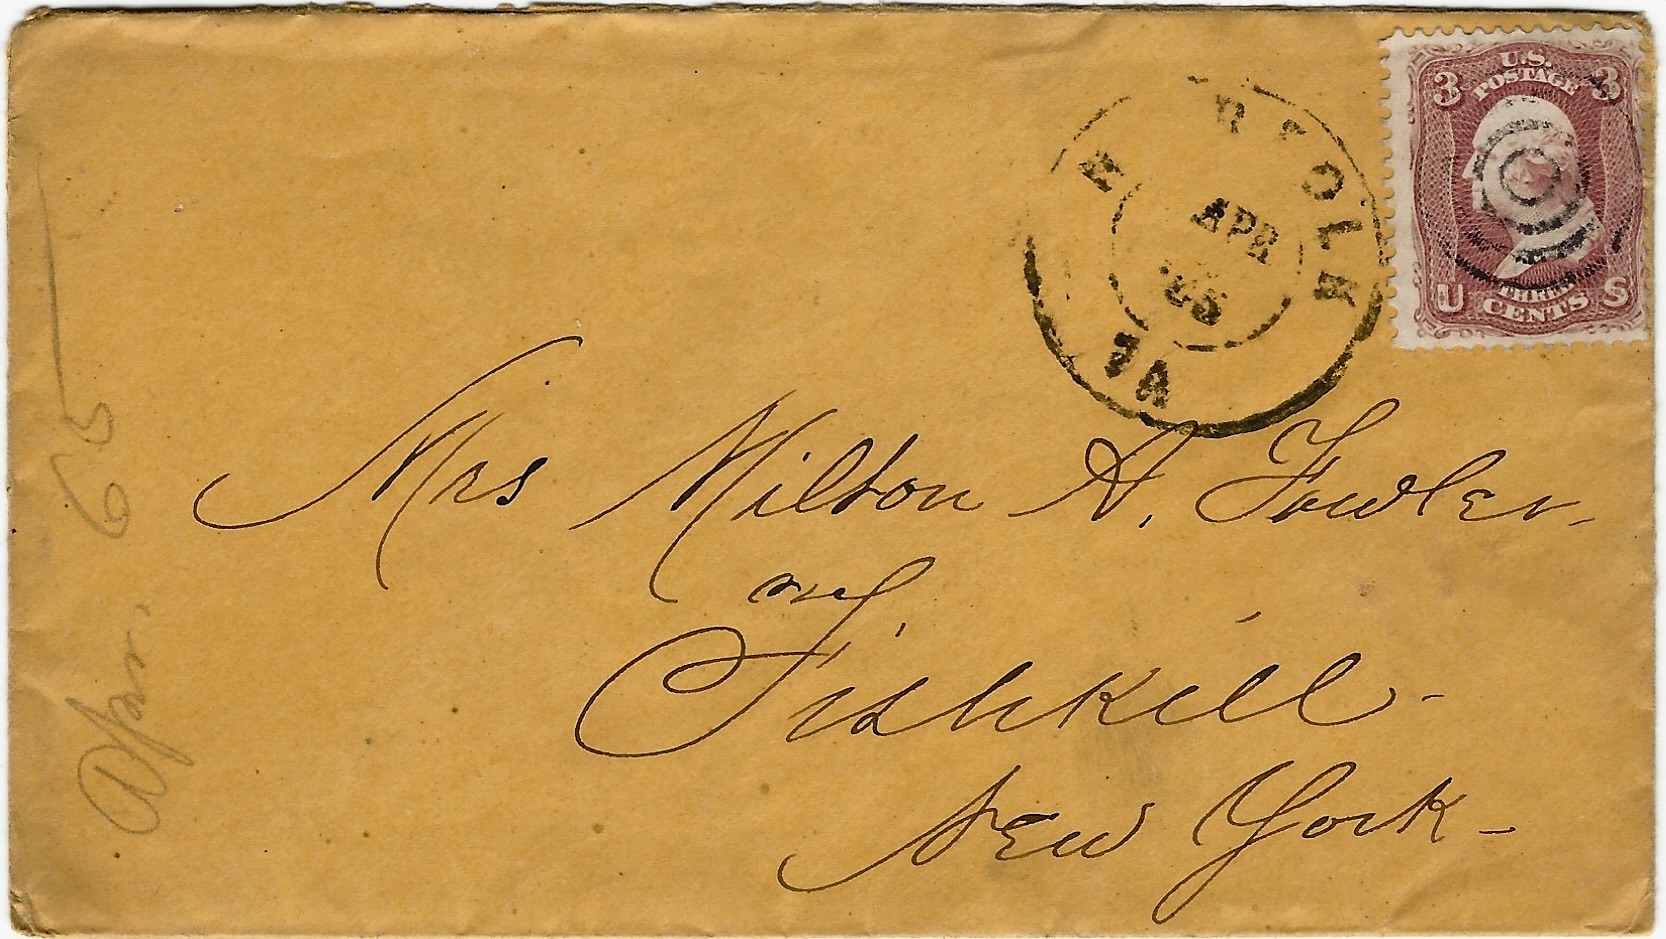 U.S. POSTAGE
3 3
U THREE CENTS S
N RFOLK
APR
'65
VA
Mrs Milton A. Fowler
Fishkill -
New York -
Apr. 65